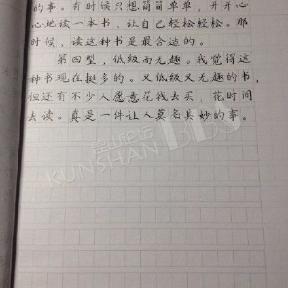 的事。有时候只想简简单单，开开心
心地读一本书，让自己轻松轻松。那
时候，读这种书是最合适的。
第四型，低级而无趣。我觉得这
种书现在挺多的。又低级又无趣的书，
但还有不少人愿意花钱去买，花时间
去读。真是一件让人莫名其妙的事。
KUNSHAN BBS